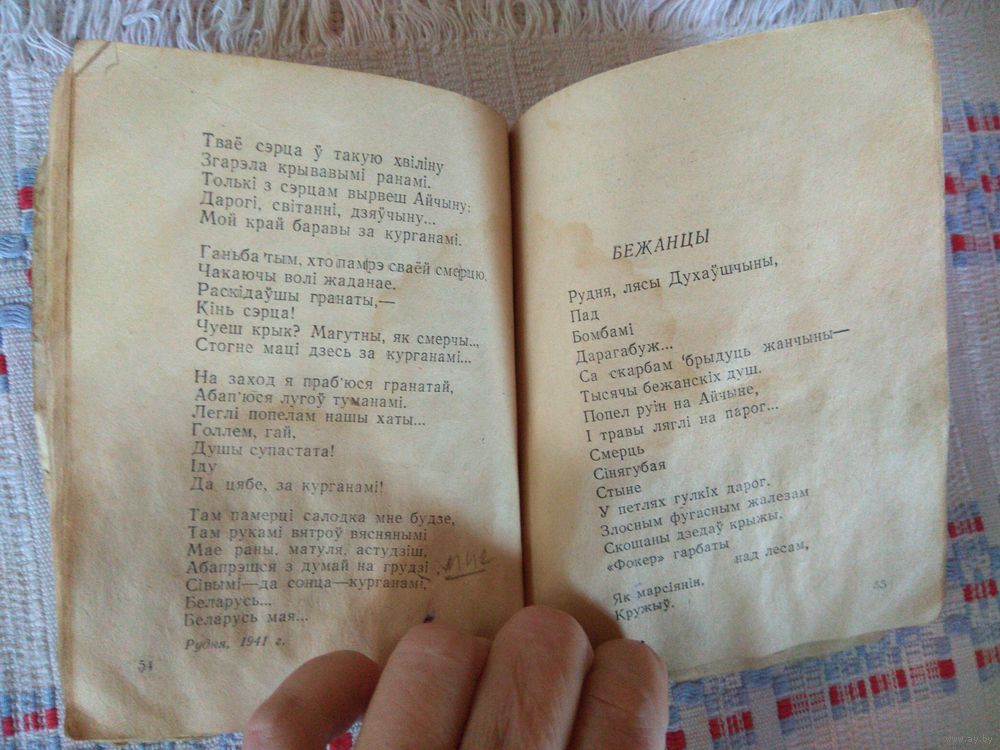 Тваё сэрца ў такую хвіліну
Згарэла крывавымі ранамі.
Толькі з сэрцам вырвеш Айчыну:
Дарогі, світанні, дзяўчыну...
Мой край баравы за курганамі.
Ганьба тым, хто памрэ сваёй смерцю,
Чакаючы волі жаданае.
Раскідаўшы гранаты,—
Кінь сэрца!
Чуеш крык? Магутны, як смерчы...
Стогне маці дзесь за курганамі...
На заход я праб'юся гранатай,
Абап'юся лугоў туманамі.
Леглі попелам нашы хаты...
Голлем, гай,
Душы супастата!
Іду
Да цябе, за курганамі!
Там памерці салодка мне будзе,
Там рукамі вятроў вяснянымі
Мае раны, матуля, астудзіш,
Абапрэшся з думай на грудзі, мне
Сівымі—да сонца—курганамі,
Беларусь...
Беларусь мая...
Рудня, 1941 г.
54
БЕЖАНЦЫ
Рудня, лясы Духаўшчыны,
Пад
Бомбамі
Дарагабуж...
Са скарбам 'брыдуць жанчыны—
Тысячы бежанскіх душ.
Попел руін на Айчыне,
І травы ляглі на парог...
Смерць
Сінягубая
Стыне
У петлях гулкіх дарог.
Злосным фугасным жалезам
Скошаны дзедаў крыжы.
«Фокер» гарбаты
над лесам,
Як марсіянін,
Кружыў.
55
www.ay.by